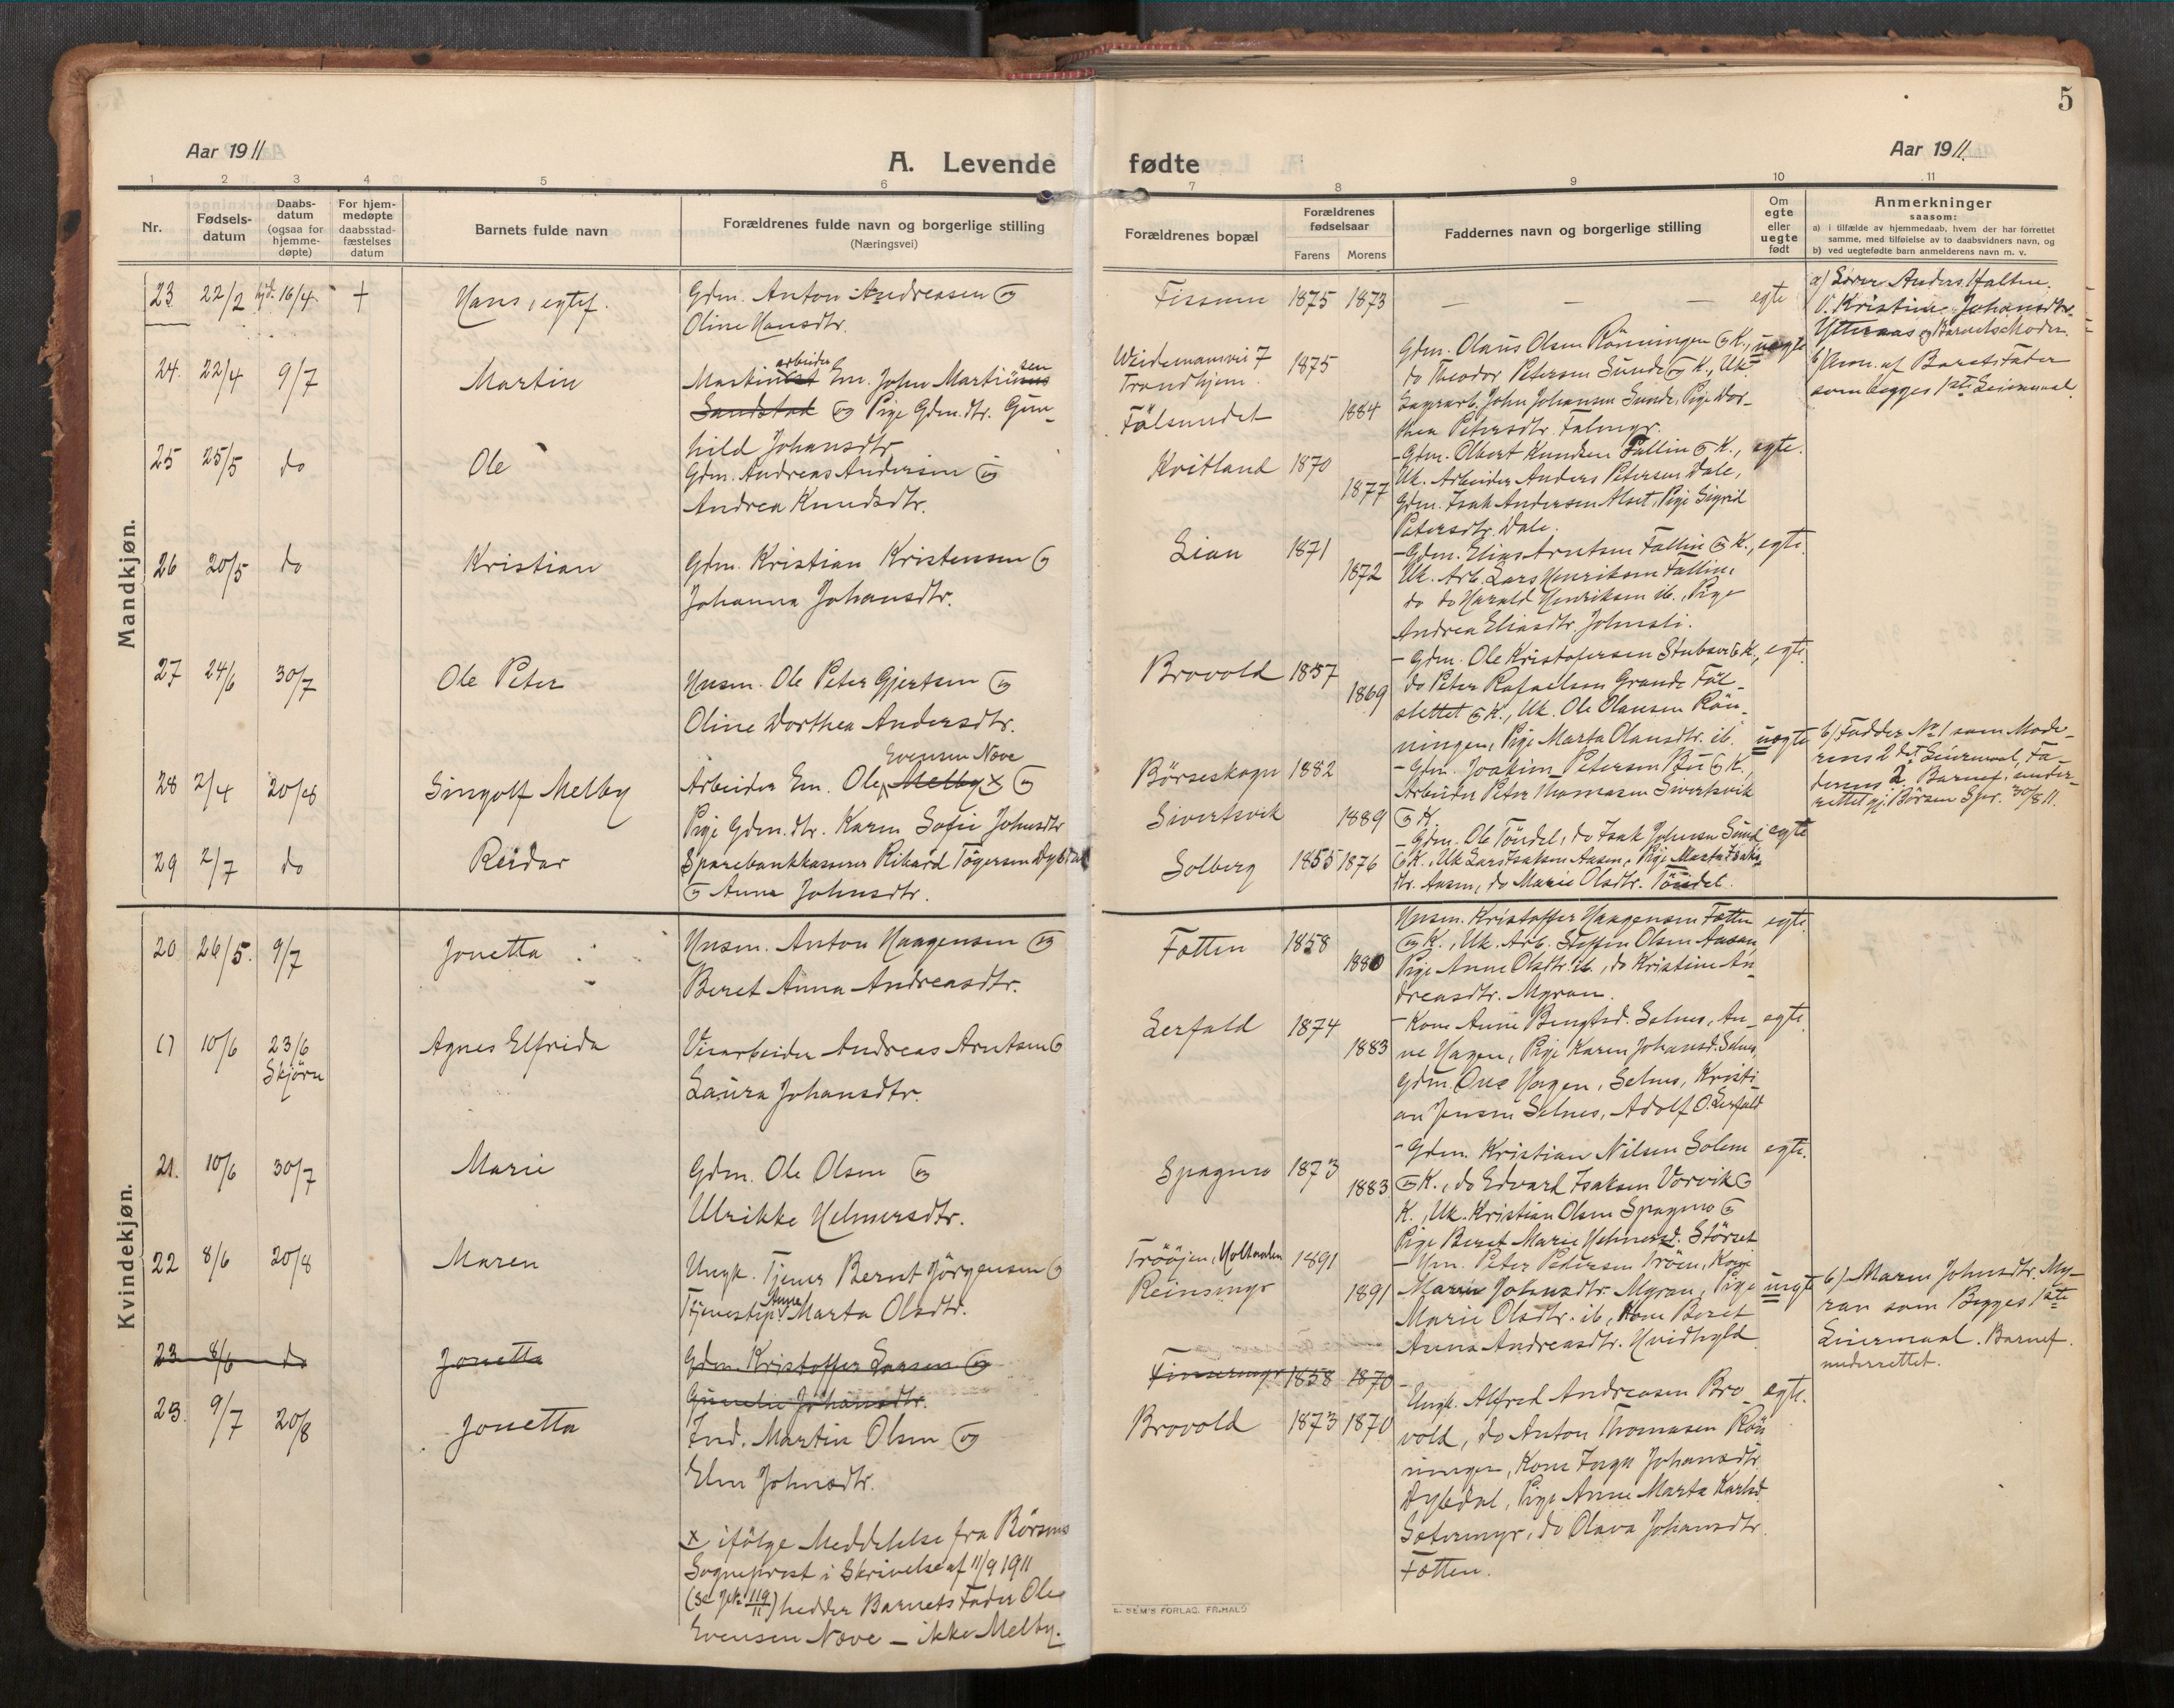 5
Aar 1911
A. Levende
fødte
Aar 1911.
1 2 3 4 5 6 7 8 9 10 11
Nr.
Fødsels-
datum
Daabs-
datum
(ogsaa for
hjemme-
døpte)
For hjem-
medøpte
daabsstad-
fæstelses
datum
Barnets fulde navn
Forældrenes fulde navn og borgerlige stilling
(Næringsvei)
Forældrenes bopæl
Forældrenes
fødselsaar
Farens Morens
Faddernes navn og borgerlige stilling
Om
egte
eller
uegte
født
Anmerkninger
saasom:
a) i tilfælde av hjemmedaab, hvem der har forrettet
samme, med tilføielse av to daabsvidners navn, og
b) ved uegtefødte barn anmelderens navn m. v.
Mandkjøn.
23 22/2 hjd. 16/4 + Hans, egtef.
Gdm. Anton Andreasen og
Oline Hansdtr.
Fissum 1875 1873 — — — egte
a) Lærer Anders Halten.
V. Kristine Johansdtr.
Ytteraas og Barnets Moder.
24. 22/4 9/7 Martin
arbeider
Em. John Martinsen
Sandstad og Pige Gdm.dtr. Gun-
hild Johansdtr.
Weidemannsvei 7
Trondhjem.
Fölsundet
1875
1884
Gdm. Olaus Olsen Rönningen og K., uegte
do Theodor Petersen Sunde og K., Uk.
Sagarb. John Johansen Sunde, Pige Dor-
thea Petersdtr. Falmyr.
b) Anm. af Barnets Fader
som begges 1ste Leiermaal.
25 25/5 do Ole
Gdm. Andreas Andersen og
Andrea Knudsdtr.
Kvitland 1870
1877
- Gdm. Olbert Knudsen Fallin og K., egte.
Uk. Arbeider Anders Petersen Dale,
Gdm. Isak Andersen Alset, Pige Sigrid
Petersdtr. Dale.
26 20/5 do Kristian
Gdm. Kristian Kristensen og
Johanna Johansdtr.
Lian 1871
1872
- Gdm. Elias Arntsen Fallin og K., egte.
Uk. Arb. Lars Henriksen Fallin,
do do Harald Henriksen ib., Pige
Andrea Eliasdtr. Johnsli.
27 24/6 30/7 Ole Peter
Husm. Ole Peter Gjertsen og
Oline Dorthea Andersdtr.
Brovold 1857
1869
- Gdm. Ole Kristofersen Stubsve og K., egte.
do Peter Rafaelsen Grande Föl-
slettet og K., Uk. Ole Olausen Rön-
ningen, Pige Marta Olausdtr. ib.
28 2/4 20/8 Singolf Melby
Evensen Næve
Arbeider Em. Ole Melby x og
Pige Gdm.dtr. Karen Sofie Johnsdtr
Börseskogn 1882
Sivertsvik 1889
- Gdm. Joakim Petersen Bu og K., uegte
Arbeider Peter Thomasen Sivertsvik
og K.
b) Fadder No 1 som Mode-
rens 2det Leiermaal, Fa-
derens 2. Barnef. under-
rettet gj. Börsen Spr. 30/8 11.
29 2/7 do Reidar
Sparebankkasserer Rikard Tögersen Dybdal
og Anna Johnsdtr.
Solberg 1855 1876
- Gdm. Ole Töndel, do Isak Johnsen Sund egte
og K., Uk Lars Isaksen Aasen, Pige Marta Isaks-
dtr. Aasen, do Marie Olsdtr. Töndel.
Kvindekjøn.
20 26/5. 9/7 Jonetta
Husm. Anton Haagensen og
Beret Anna Andreasdtr.
Fotten 1858
1880
Husm. Kristoffer Haagensen Fotten egte.
og K., Uk. Arb. Steffen Olsen Aasan,
Pige Anne Olsdtr. ib., do Kristine An-
dreasdtr. Myran.
( ) 10/6 23/6
Skjörn
Agnes Elfrida
Veiarbeider Andreas Arntsen og
Laura Johansdtr.
Lerfald 1874
1883
- Kone Anne Bengtsd. Selnes, An- egte.
ne Hagen, Pige Karen Johansd. Selnes,
Gdm. Ove Hagen, Selnes, Kristi-
an Jensen Selnes, Adolf O. Lerfald
21. 10/6 30/7 Marie
Gdm. Ole Olsen og
Ulrikke Helmersdtr.
Spagmo 1873
1883
- Gdm. Kristian Nilsen Solem egte.
og K., do Edvard Isaksen Vorvik og
K., Uk. Kristian Olsen Spagmo og
Pige Beret Marie Helmersd. Störset
22 8/6 20/8 Maren
Ungk. Tjener Bernt Jörgensen og
Tjenestep. Anne Marta Olsdtr.
Trööjen, Holtaalen 1891
Reinsmyr 1891
- Em. Peter Pedersen Tröen, Kone
Maren Johnsdtr. Myran, Pige uegte
Marie Olsdtr. ib, Kone Beret
Anna Andreasdtr. Hvidhyld.
b) Maren Johnsdtr. My-
ran som Begges 1ste
Leiermaal. Barnef.
underrettet.
23 8/6 do Jonetta
Gdm. Kristoffer Larsen og
Gunelie Johansdtr.
Finnermyr 1858 1870 -
23. 9/7 20/8 Jonetta
Ind. Martin Olsen og
Elen Johnsdtr.
Brovold 1873 1870
Ungk. Alfred Andreasen Bro- egte.
vold, do Anton Thomasen Rön-
ningen, Kone Inga Johansdtr.
Dybdal, Pige Anne Marta Karlsd.
Sætermyr, do Olava Johansdtr.
Fotten.
x ifölge Meddelelse fra Börsens
Sogneprest i Skrivelse af 11/9 1911
(se Jek. 119/11) hedder Barnets Fader Ole
Evensen Næve — ikke Melby.
E. SEM'S FORLAG, FR.HALD